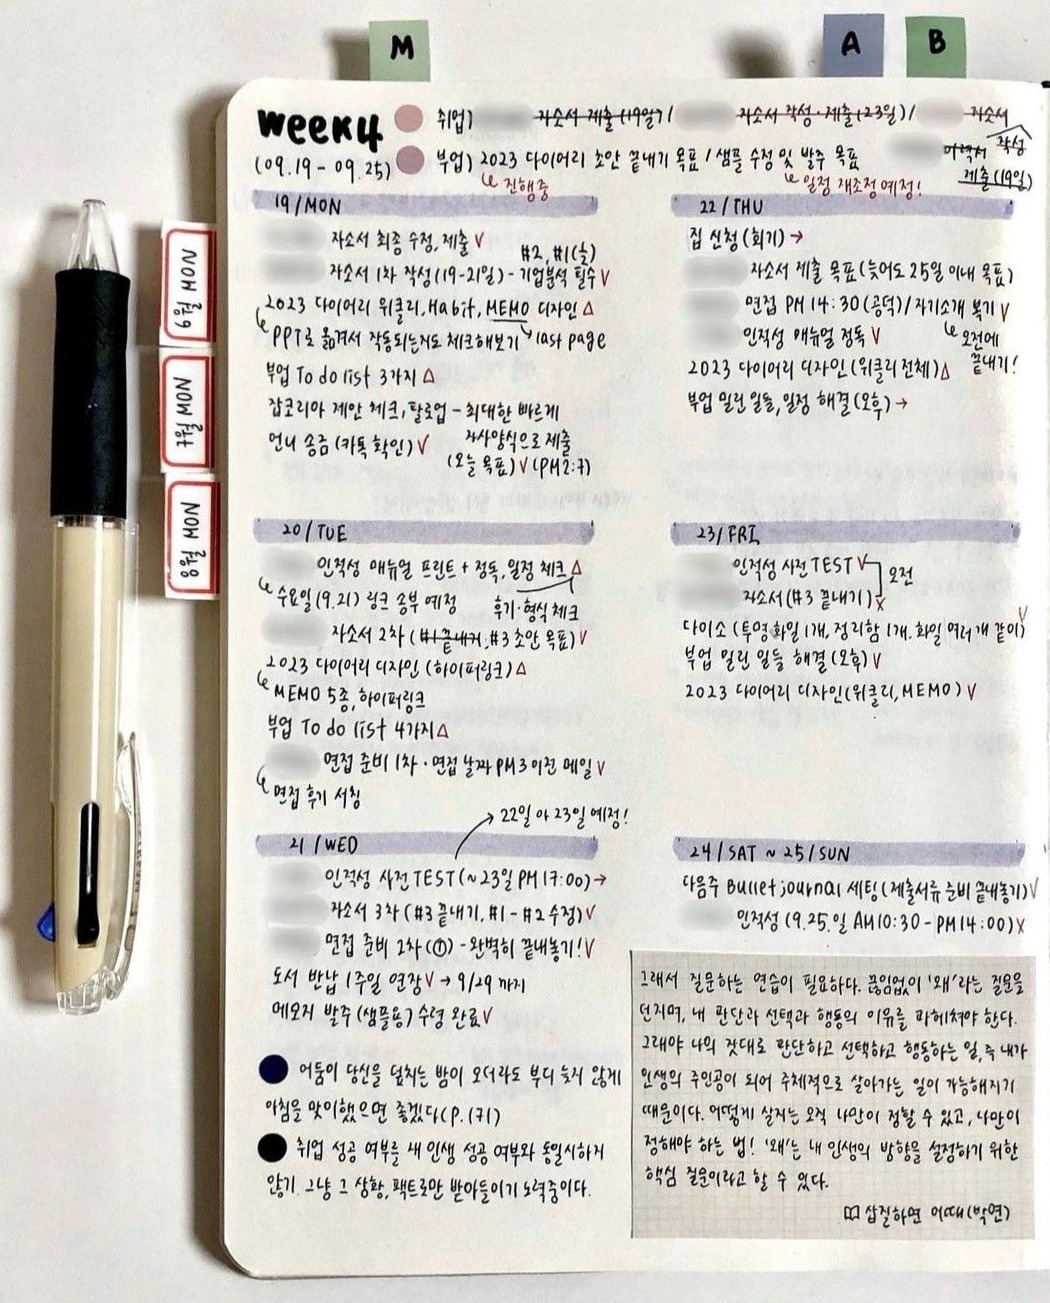 M
A
B
6월 MON
7월 MON
8월 MON
week4
(09.19 - 09.25)
취업) 자소서 제출(19일) / 자소서 작성·제출(23일) / 자소서 작성
이력서 제출(19일)
부업) 2023 다이어리 초안 끝내기 목표 / 샘플 수정 및 발주 목표
↳ 진행중
↳ 일정 재조정 예정!
19/MON
자소서 최종 수정, 제출 V
#2, #1(½)
자소서 1차 작성(19-21일) - 기업분석 필수 V
2023 다이어리 위클리, Habit, MEMO 디자인 △
↳ PPT로 옮겨서 작동되는지도 체크해보기 ↘ last page
부업 To do list 3가지 △
잡코리아 제안 체크, 팔로업 - 최대한 빠르게
언니 송금 (카톡 확인) V
자사양식으로 제출
(오늘 목표) V (PM2:7)
20/TUE
인적성 매뉴얼 프린트 + 정독, 일정 체크 △
↳ 수요일(9.21) 링크 송부 예정
후기·형식 체크
자소서 2차 (#1 끝내기, #3 초안 목표) V
2023 다이어리 디자인 (하이퍼링크) △
↳ MEMO 5종, 하이퍼링크
부업 To do list 4가지 △
면접 준비 1차 · 면접 날짜 PM3 이전 메일 V
↳ 면접 후기 서칭
→ 22일 아 23일 예정!
21/WED
인적성 사전 TEST (~23일 PM 17:00) →
자소서 3차 (#3 끝내기, #1-#2 수정) V
면접 준비 2차 - 완벽히 끝내놓기! V
도서 반납 1주일 연장 V → 9/29까지
메모지 발주 (샘플용) 수령 완료 V
어둠이 당신을 덮치는 밤이 오더라도 부디 늦지 않게
아침을 맞이했으면 좋겠다(P.171)
취업 성공 여부를 내 인생 성공 여부와 동일시하지
않기. 그냥 그 상황, 팩트로만 받아들이기 노력중이다.
22/THU
집 신청 (회기) →
자소서 제출 목표(늦어도 25일 이내 목표)
면접 PM 14:30 (공덕) / 자기소개 복기 V
↳ 오전에 끝내기!
인적성 매뉴얼 정독 V
2023 다이어리 디자인(위클리 전체) △
부업 밀린 일들, 일정 해결 (오후) →
23/FRI
인적성 사전 TEST V
오전
자소서 (#3 끝내기) X
다이소 (투명화일 1개, 정리함 1개, 화일 여러개 같이) V
부업 밀린 일들 해결 (오후) V
2023 다이어리 디자인(위클리, MEMO) V
24/SAT ~ 25/SUN
다음주 Bullet journal 세팅 (제출서류 준비 끝내놓기) V
인적성 (9.25.일 AM10:30 - PM14:00) X
그래서 질문하는 연습이 필요하다. 끊임없이 '왜'라는 질문을
던지며, 내 판단과 선택과 행동의 이유를 파헤쳐야 한다.
그래야 나의 잣대로 판단하고 선택하고 행동하는 일, 즉 내가
인생의 주인공이 되어 주체적으로 살아가는 일이 가능해지기
때문이다. 어떻게 살지는 오직 나만이 정할 수 있고, 나만이
정해야 하는 법! '왜'는 내 인생의 방향을 설정하기 위한
핵심 질문이라고 할 수 있다.
삽질하면 어때(박연)